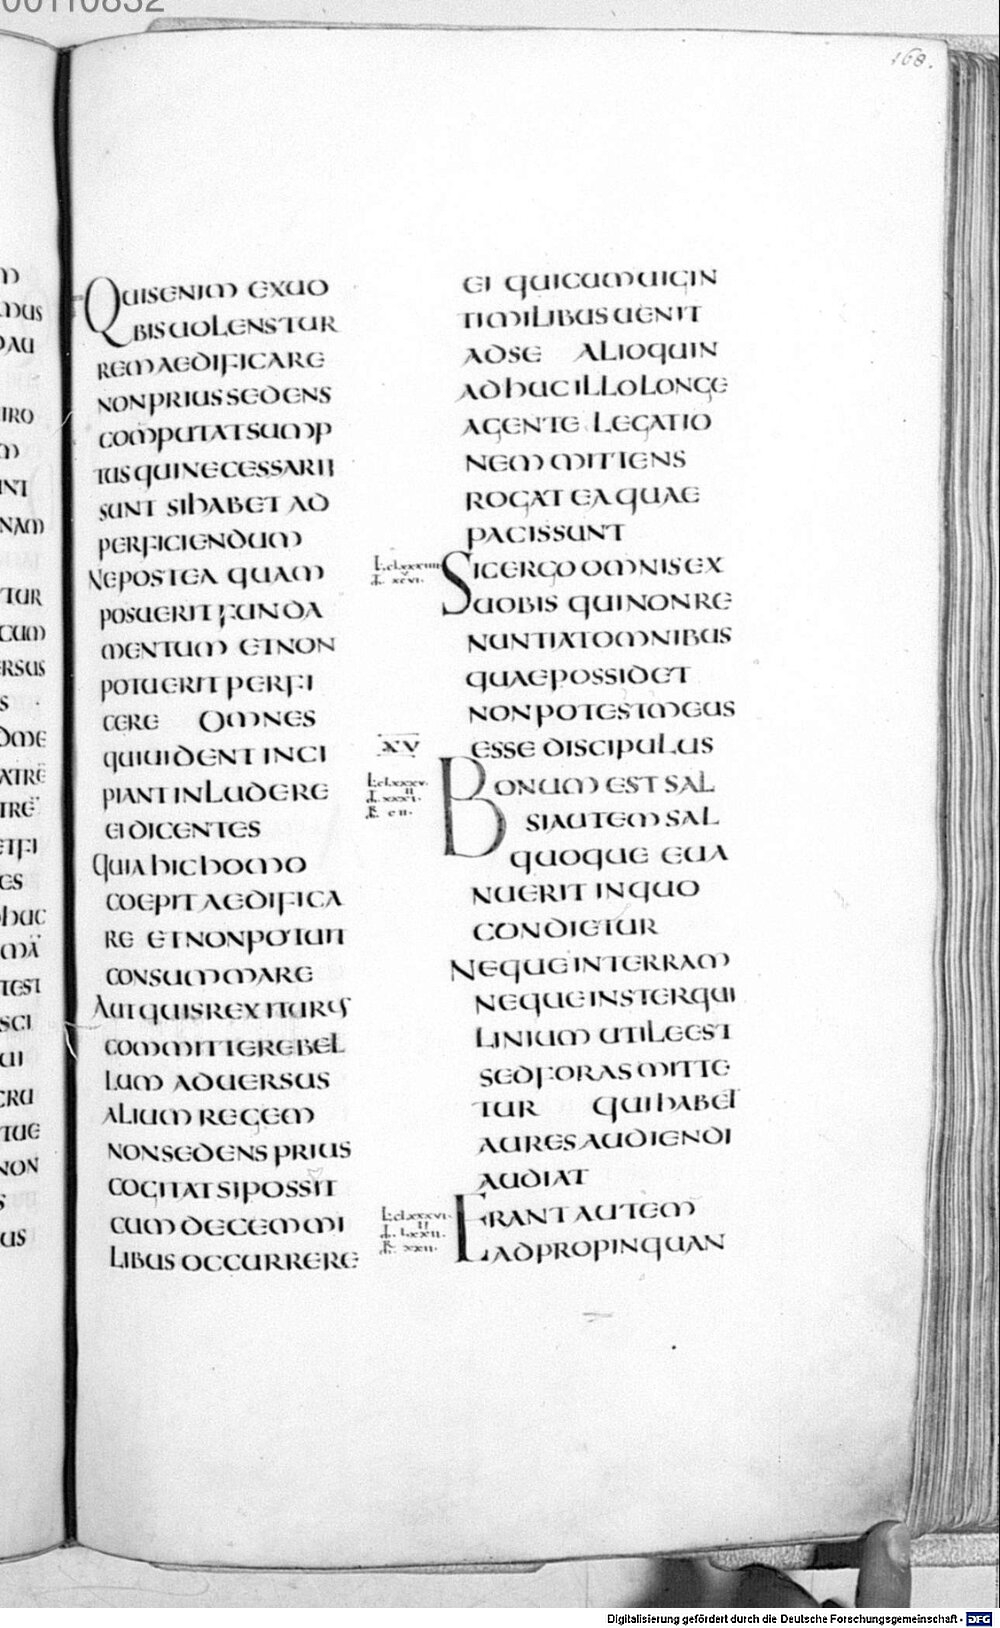 00110832
168.
QUISENIM EXUO
BISUOLENSTUR
REMAEDIFICARE
NONPRIUSSEDENS
COMPUTATSUMP
TUSQUINECESSARII
SUNT SIHABET AD
PERFICIENDUM
NEPOSTEA QUAM
POSUERIT FUNDA
MENTUM ETNON
POTUERIT PERFI
CERE OMNES
QUIUIDENT INCI
PIANT INLUDERE
EI DICENTES
QUIA HIC HOMO
COEPIT AEDIFICA
RE ETNONPOTUIT
CONSUMMARE
AUT QUISREX ITURUS
COMMITTEREBEL
LUM ADUERSUS
ALIUM REGEM
NONSEDENS PRIUS
COGITAT SIPOSSIT
CUM DECEM MI
LIBUS OCCURRERE
EI QUICUMUIGIN
TIMILIBUSUENIT
ADSE ALIOQUIN
ADHUC ILLO LONGE
AGENTE LEGATIO
NEM MITTENS
ROGAT EA QUAE
PACISSUNT
SICERGO OMNISEX
UOBIS QUINONRE
NUNTIAT OMNIBUS
QUAEPOSSIDET
NONPOTESTMEUS
ESSE DISCIPULUS
XV
BONUM EST SAL
SIAUTEM SAL
QUOQUE EUA
NUERIT INQUO
CONDIETUR
NEQUE INTERRAM
NEQUE INSTERQUI
LINIUM UTILEEST
SEDFORAS MITTE
TUR QUIHABET
AURES AUDIENDI
AUDIAT
ERANT AUTEM
ADPROPINQUAN
Digitalisierung gefördert durch die Deutsche Forschungsgemeinschaft - DFG